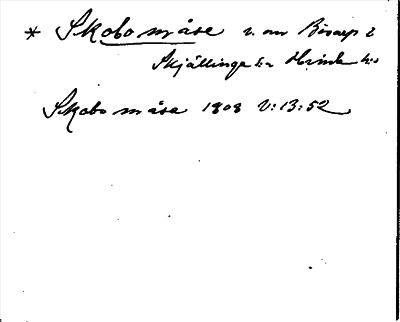 * Skobomåse v. om Bosarp i
Skjällinge by Hvinla hd
Skobo måsa 1808 V:13:52